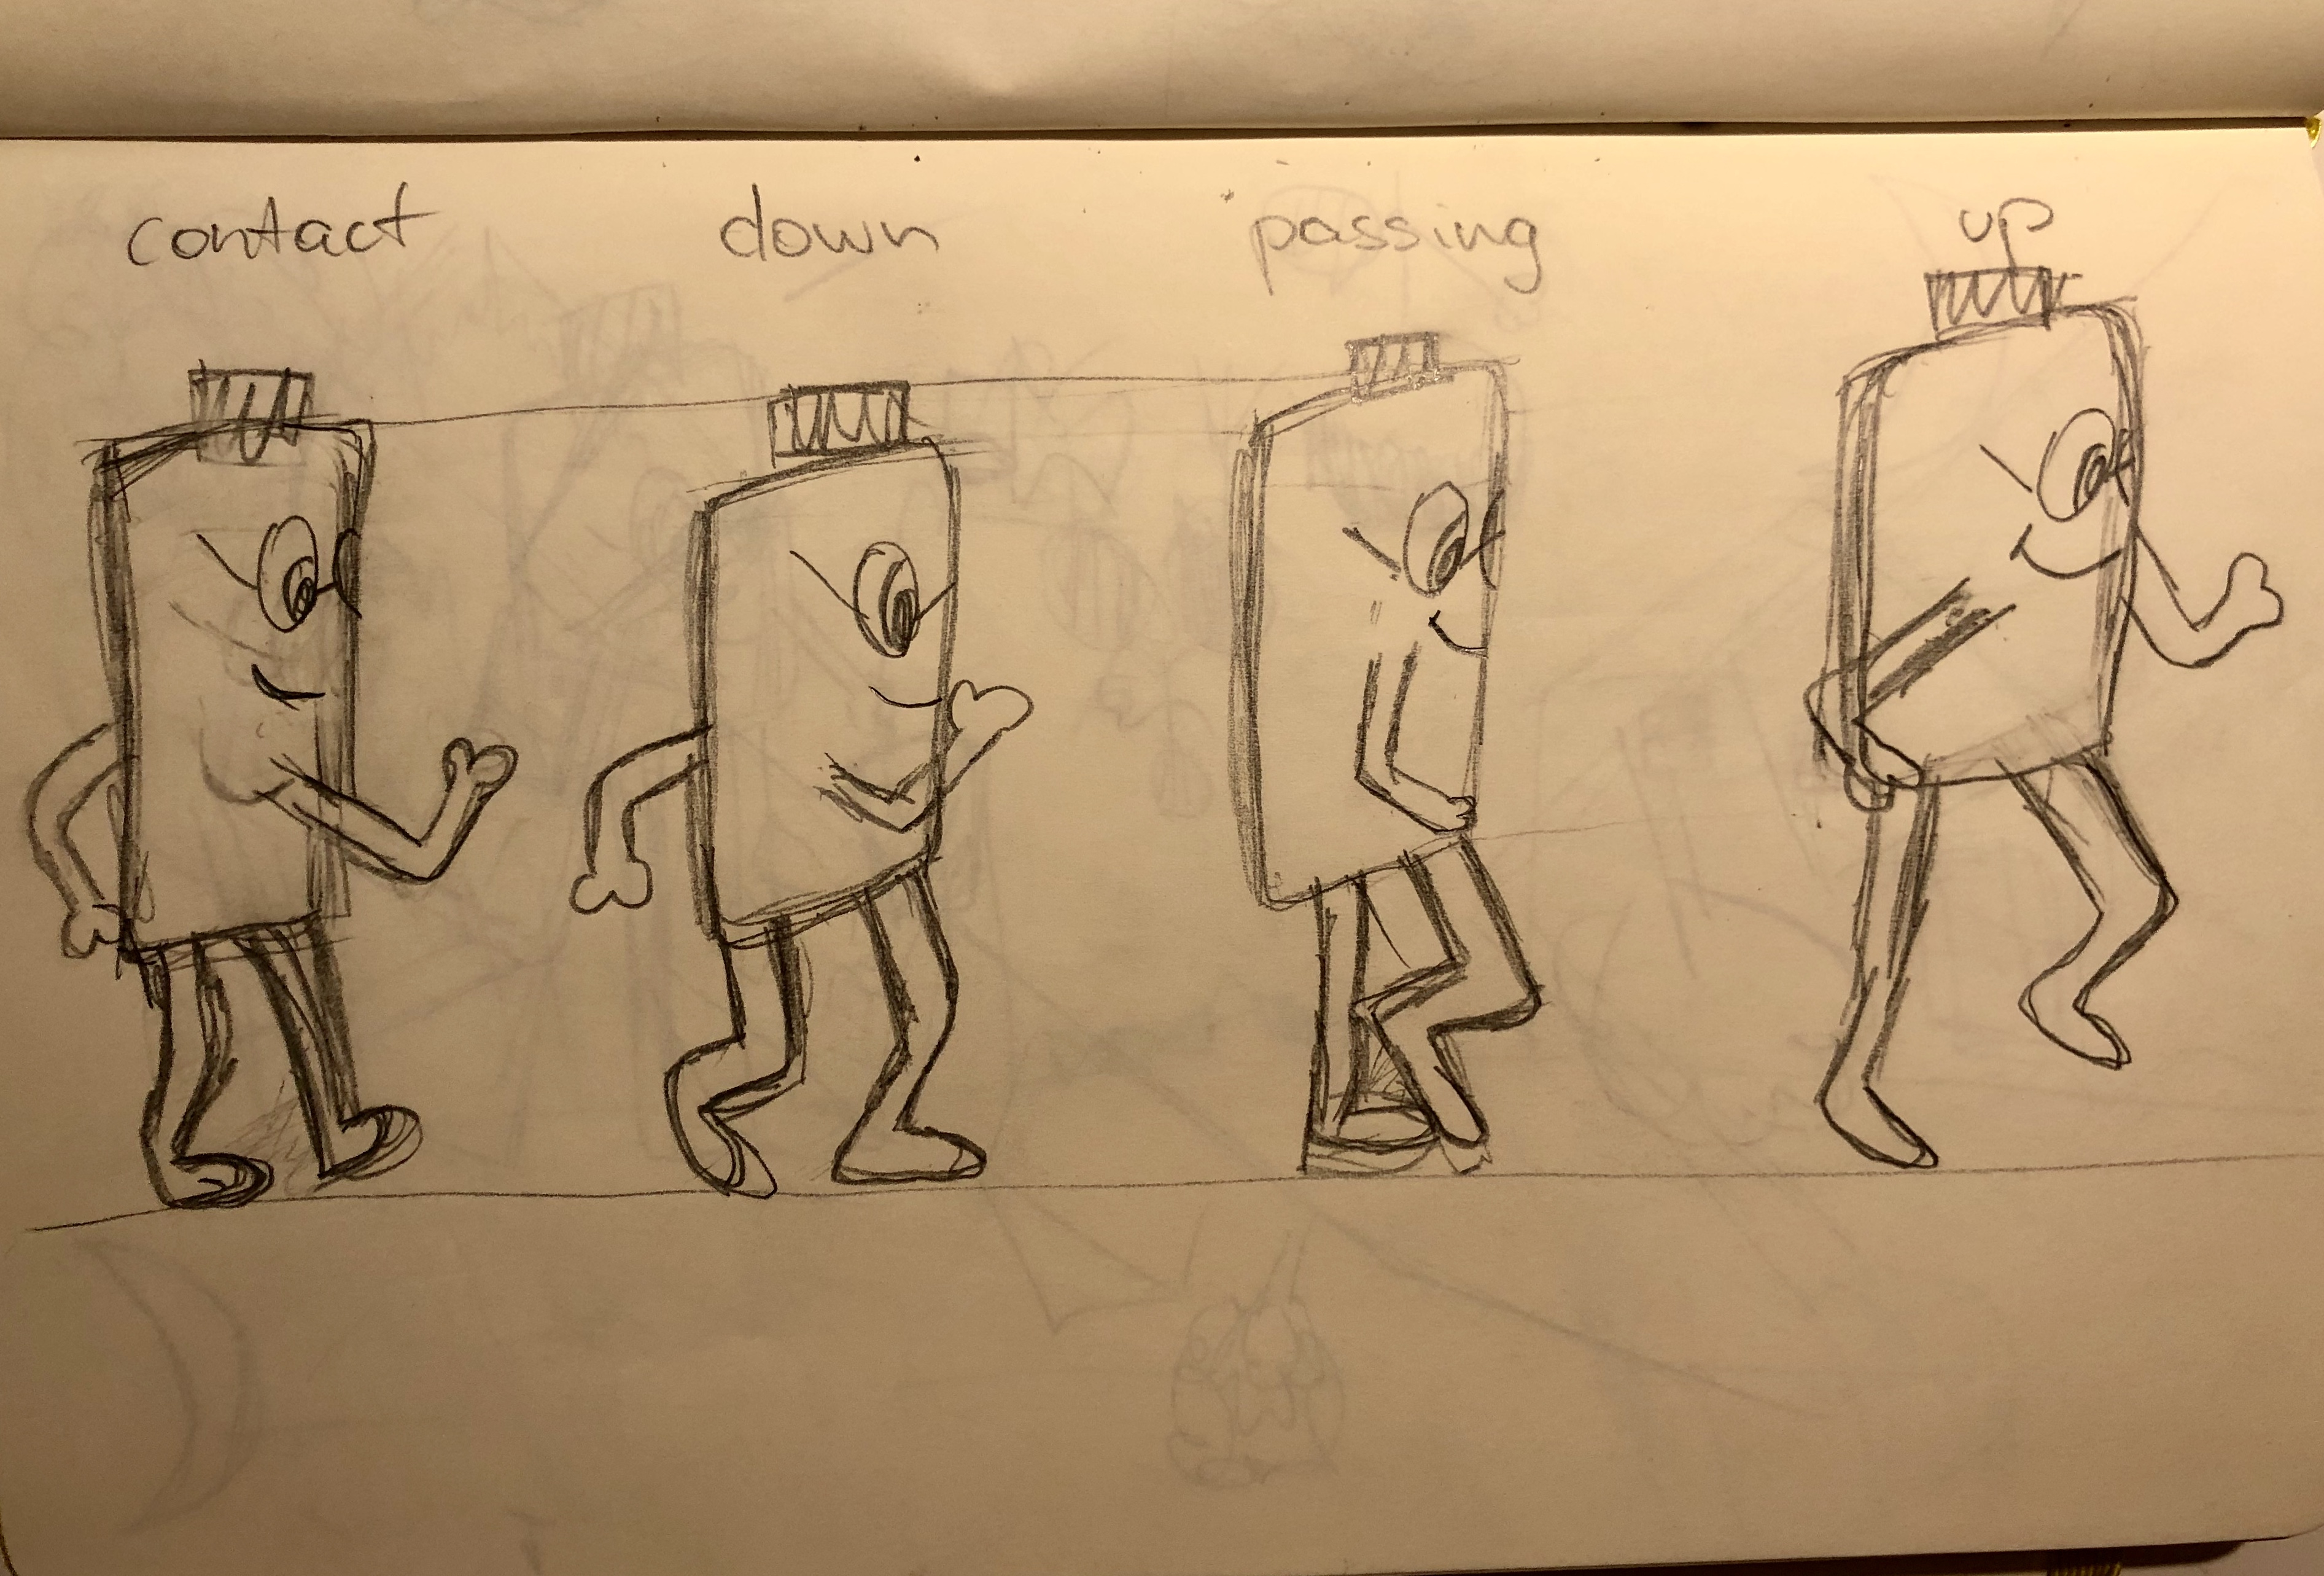 contact down passing up